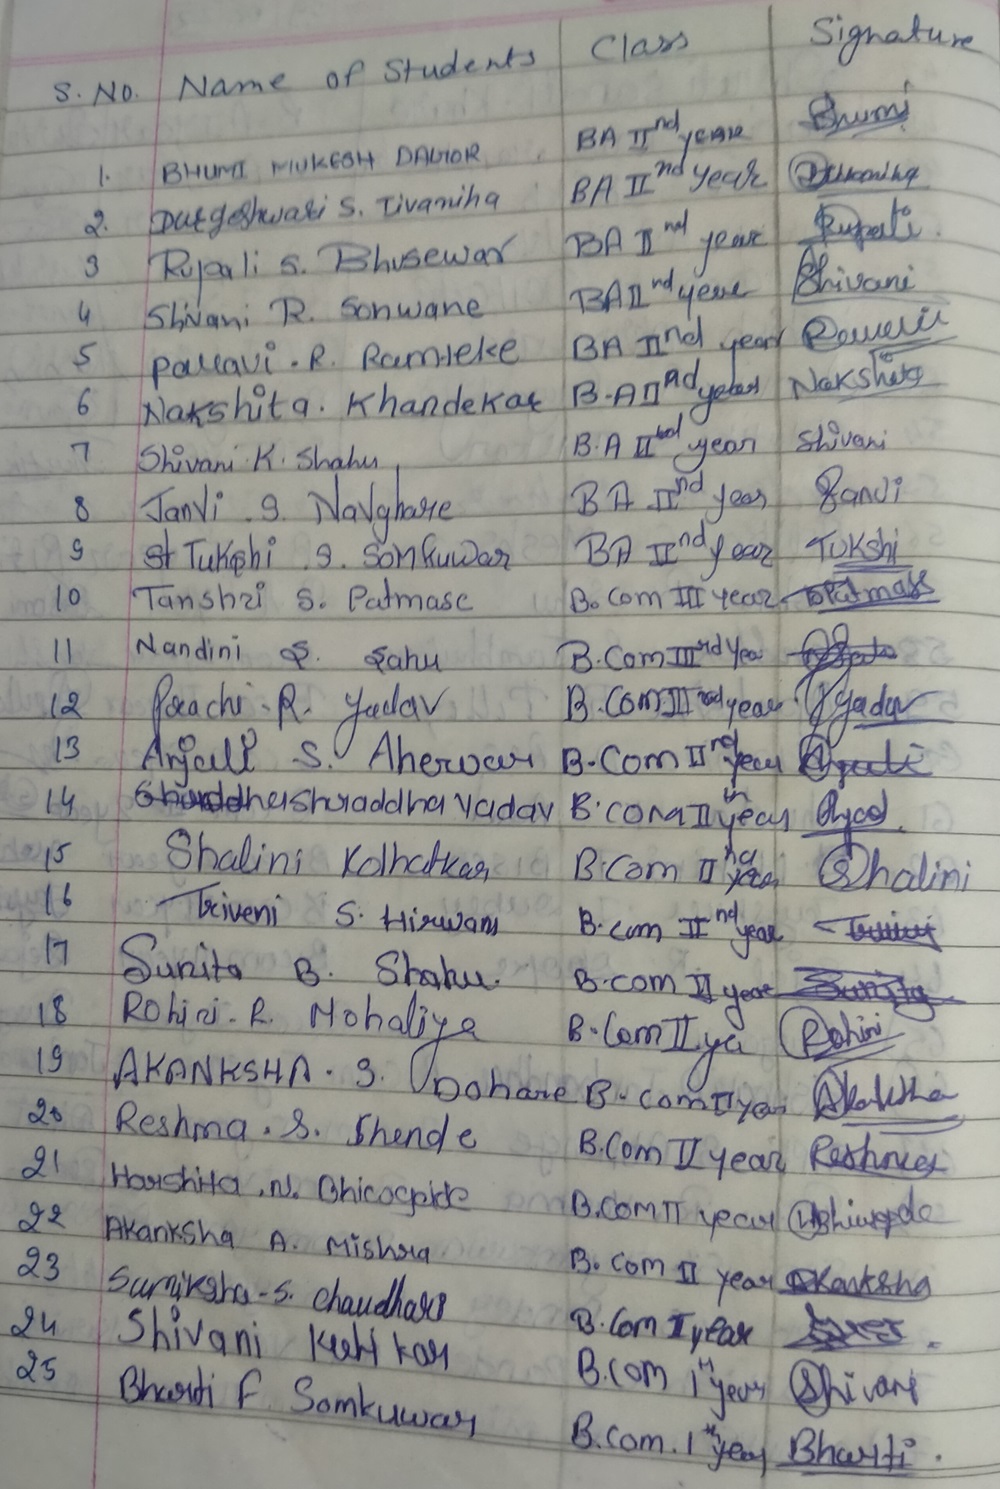 S. No. Name of Students Class Signature
1. BHUMI MUKESH BA IInd year Bhumi
2. Durgeshwari S. Tivaniha BA IInd year
3 Rupali S. Bhusewar BA IInd year Rupali.
4 Shivani R. Sonwane BA IInd year Shivani
5 Pallavi . R. Ramteke BA IInd year
6 Nakshita. Khandekar B.A IInd year Nakshita
7 Shivani K. Shahu B.A IInd year Shivani
8 Janvi . G. Navghare BA IInd year Janvi
9 Tukshi . S. Somkuwar BA IInd year Tukshi
10 Tanshri S. Patmase B.Com III year Patmase
11 Nandini S. Sahu B.Com IIIrd Yea
12 Prachi . R. Yadav B.Com IIIrd year Yadav
13 Anjali S. Aherwar B.Com IInd year
14 shraddha Yadav B.com II year
15 Shalini Kolhatkar B.Com IInd year Shalini
16 Triveni S. Hirwani B.com IInd year
17 Sunita B. Shahu. B.com II year Sunita
18 Rohini . R. Mohaliya B.Com II ya Rohini
19 AKANKSHA . S. Dohare B.com II year Akanksha
20 Reshma . S. Shende B.Com II year Reshma
21 Harshita . N. B.Com II year
22 Akanksha A. Mishra B.Com II year Akanksha
23 Samiksha - S. Chaudhari B.Com I year
24 Shivani B.Com 1st year Shivani
25 Bharti F Somkuwar B.Com. 1st year Bharti.